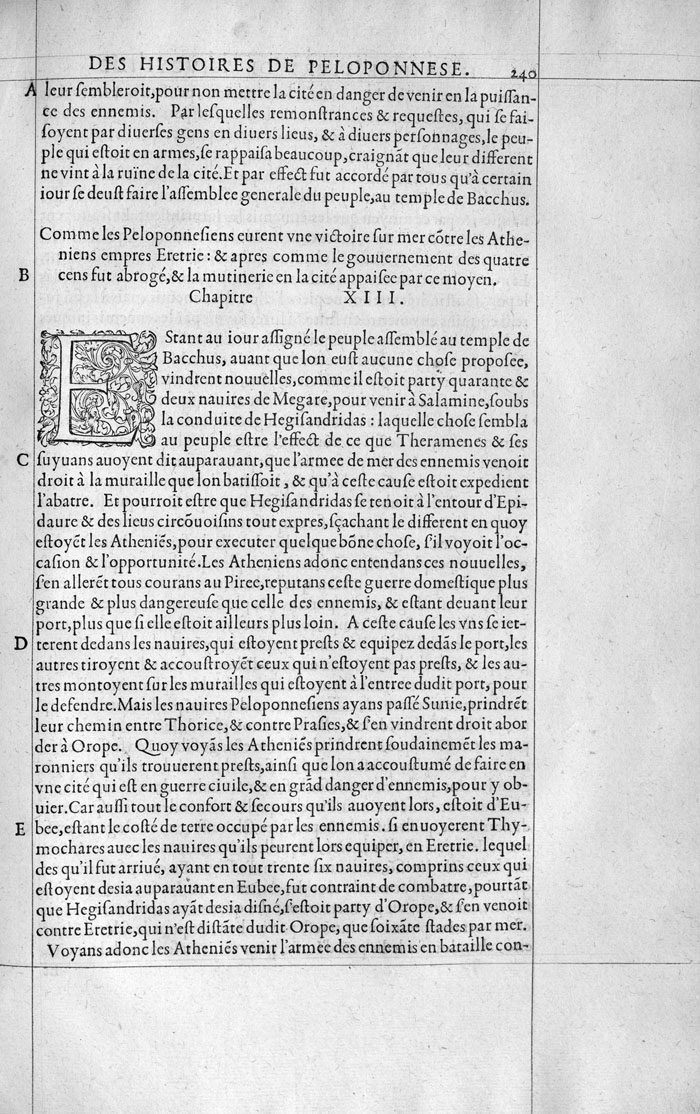 DES HISTOIRES DE PELOPONNESE. 240
A leur ſembleroit, pour non mettre la cité en danger de venir en la puiſſan-
ce des ennemis. Par leſquelles remonſtrances & requeſtes, qui ſe fai-
ſoyent par diuerſes gens en diuers lieus, & à diuers perſonnages, le peu-
ple qui eſtoit en armes, ſe rappaiſa beaucoup, craignāt que leur different
ne vint à la ruïne de la cité. Et par effect fut accordé par tous qu'à certain
iour ſe deuſt faire l'aſſemblee generale du peuple, au temple de Bacchus.
Comme les Peloponneſiens eurent vne victoire ſur mer cōtre les Athe-
niens empres Eretrie: & apres comme le gouuernement des quatre
B cens fut abrogé, & la mutinerie en la cité appaiſee par ce moyen.
Chapitre XIII.
EStant au iour aſſigné le peuple aſſemblé au temple de
Bacchus, auant que lon euſt aucune choſe propoſee,
vindrent nouuelles, comme il eſtoit party quarante &
deux nauires de Megare, pour venir à Salamine, ſoubs
la conduite de Hegiſandridas: laquelle choſe ſembla
au peuple eſtre l'effect de ce que Theramenes & ſes
C ſuyuans auoyent dit auparauant, que l'armee de mer des ennemis venoit
droit à la muraille que lon batiſſoit, & qu'à ceſte cauſe eſtoit expedient
l'abatre. Et pourroit eſtre que Hegiſandridas ſe tenoit à l'entour d'Epi-
daure & des lieus circōuoiſins tout expres, ſçachant le different en quoy
eſtoyēt les Atheniēs, pour executer quelque bōne choſe, ſ'il voyoit l'oc-
caſion & l'opportunité. Les Atheniens adonc entendans ces nouuelles,
ſ'en allerēt tous courans au Piree, reputans ceſte guerre domeſtique plus
grande & plus dangereuſe que celle des ennemis, & eſtant deuant leur
port, plus que ſi elle eſtoit ailleurs plus loin. A ceſte cauſe les vns ſe iet-
D terent dedans les nauires, qui eſtoyent preſts & equipez dedās le port, les
autres tiroyent & accouſtroyēt ceux qui n'eſtoyent pas preſts, & les au-
tres montoyent ſur les murailles qui eſtoyent à l'entree dudit port, pour
le defendre. Mais les nauires Peloponneſiens ayans paſſé Sunie, prindrēt
leur chemin entre Thorice, & contre Praſies, & ſ'en vindrent droit abor
der à Orope. Quoy voyās les Atheniēs prindrent ſoudainemēt les ma-
ronniers qu'ils trouuerent preſts, ainſi que lon a accouſtumé de faire en
vne cité qui eſt en guerre ciuile, & en grād danger d'ennemis, pour y ob-
uier. Car auſſi tout le confort & ſecours qu'ils auoyent lors, eſtoit d'Eu-
E bee, eſtant le coſté de terre occupé par les ennemis. ſi enuoyerent Thy-
mochares auec les nauires qu'ils peurent lors equiper, en Eretrie. lequel
des qu'il fut arriué, ayant en tout trente ſix nauires, comprins ceux qui
eſtoyent deſia auparauant en Eubee, fut contraint de combatre, pourtāt
que Hegiſandridas ayāt deſia diſné, ſ'eſtoit party d'Orope, & ſ'en venoit
contre Eretrie, qui n'eſt diſtāte dudit Orope, que ſoixāte ſtades par mer.
Voyans adonc les Atheniēs venir l'armee des ennemis en bataille con-